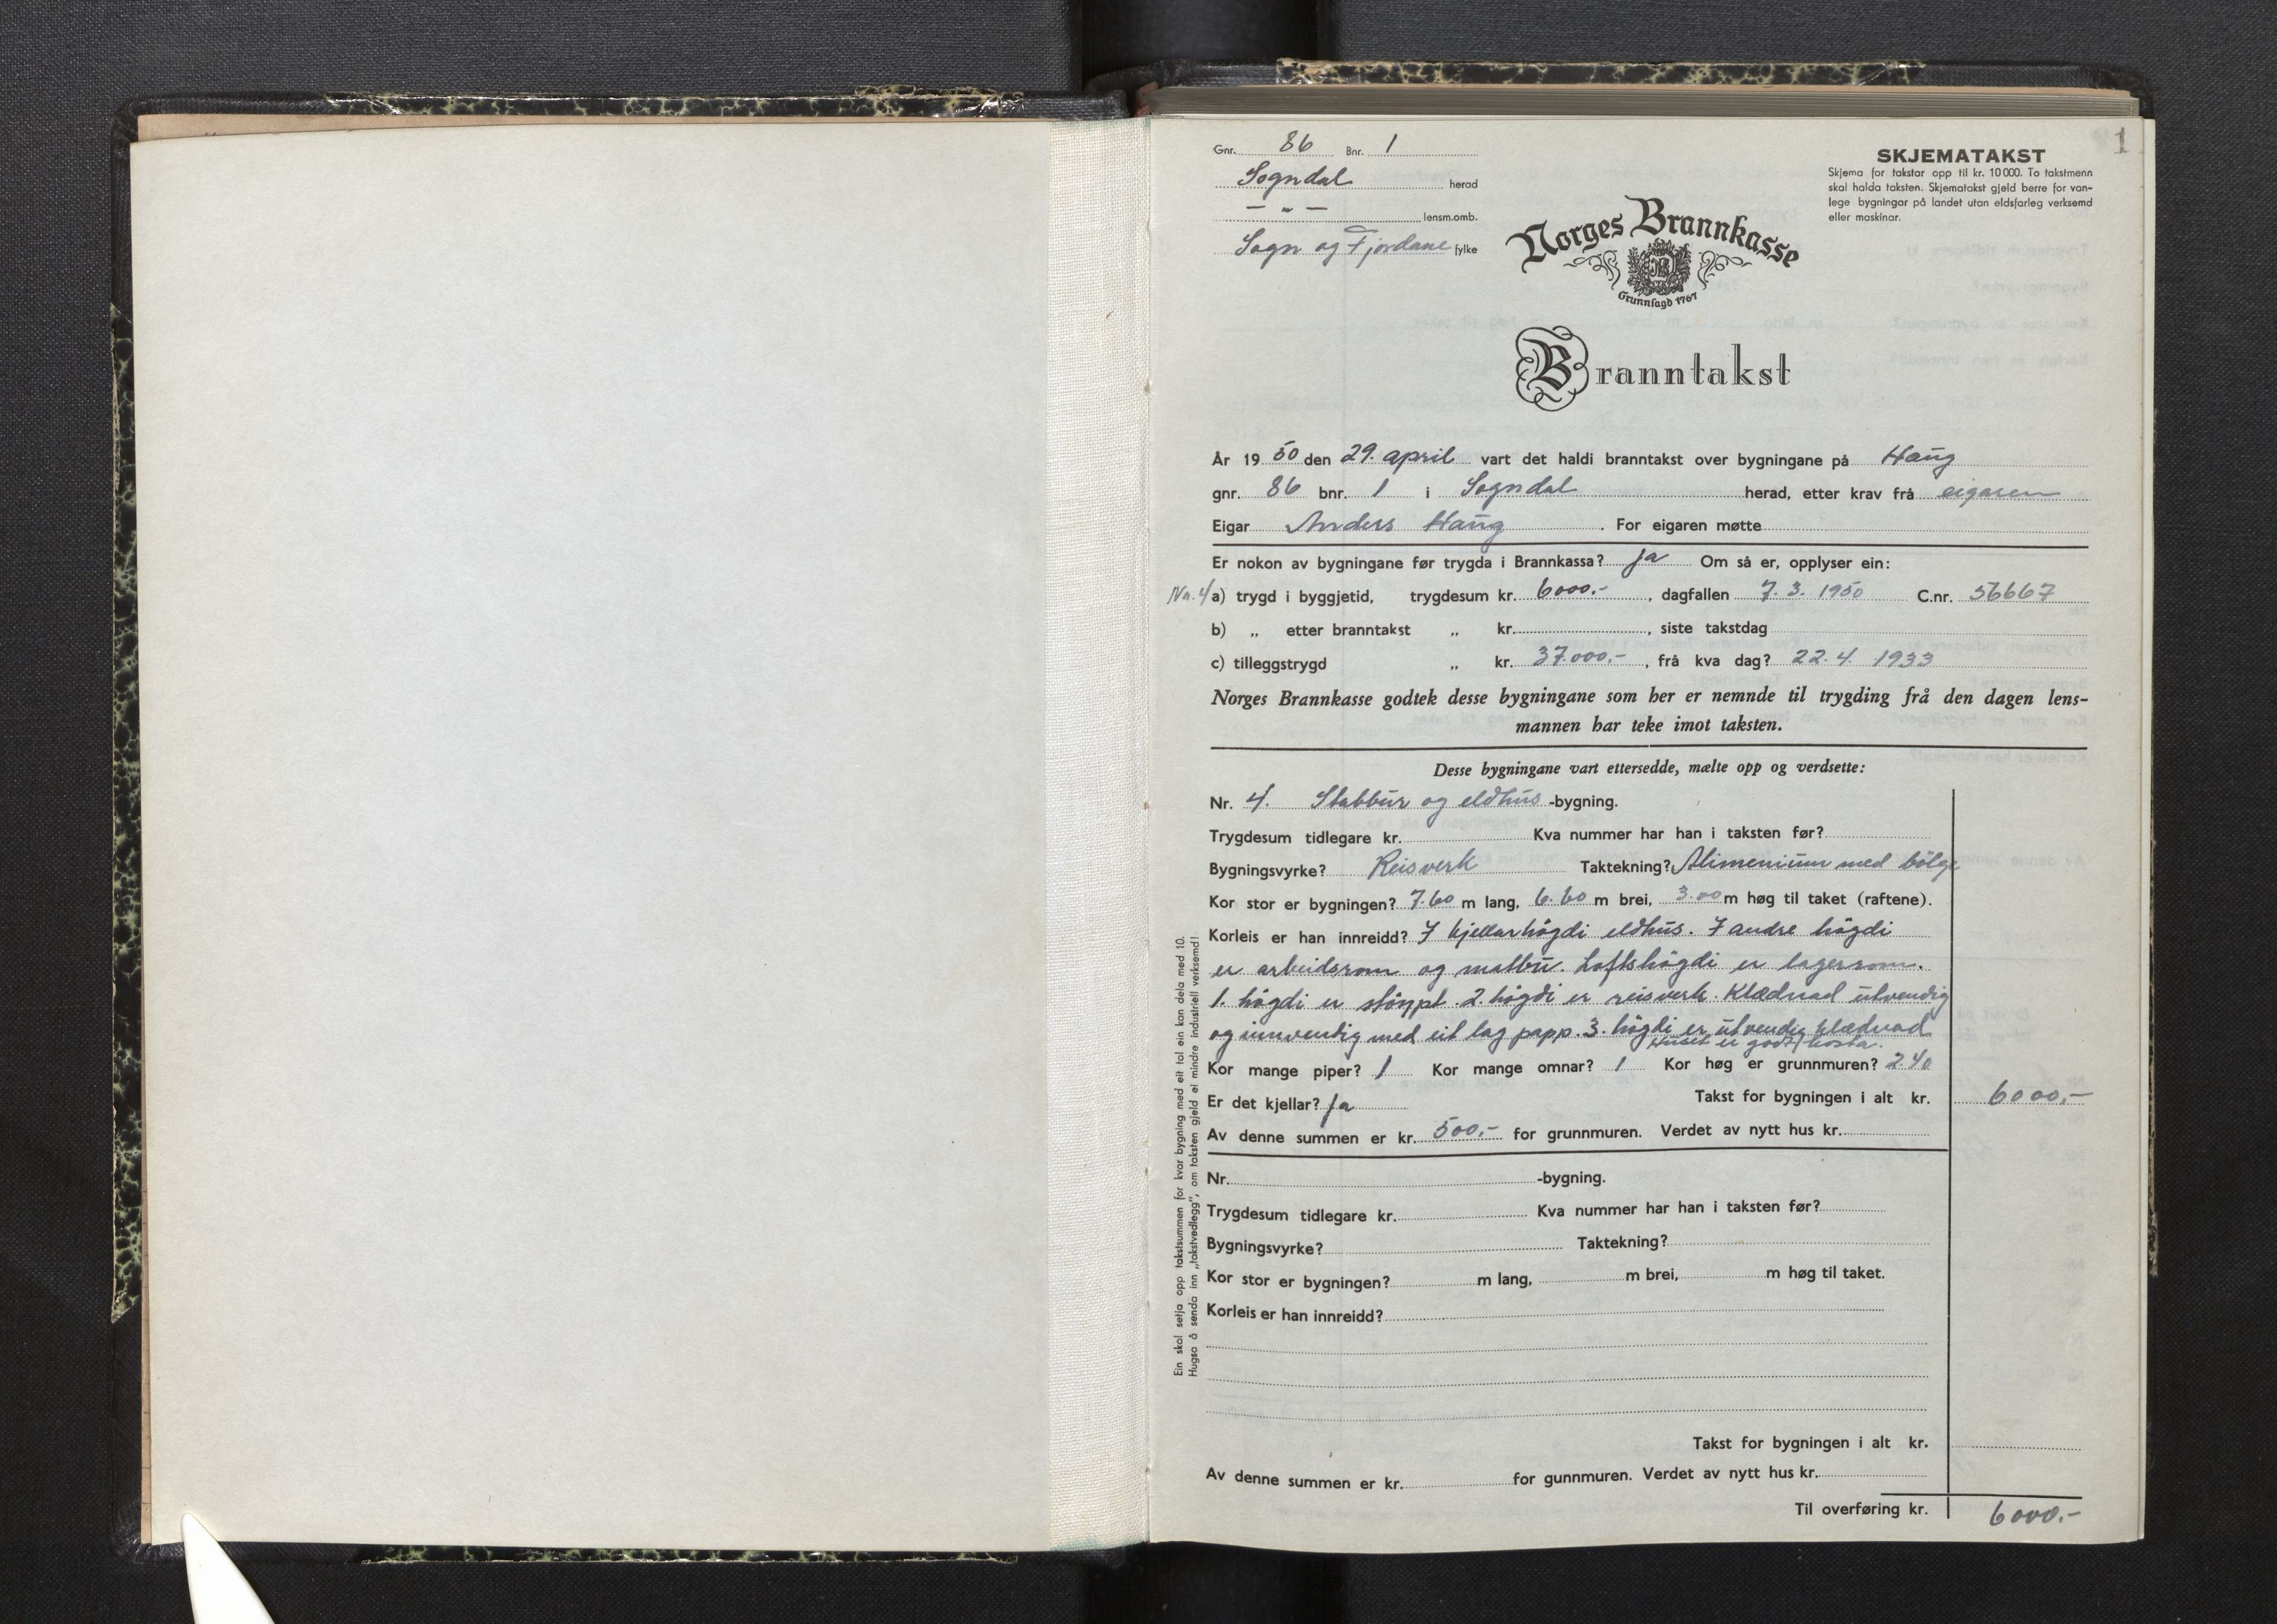 1
Gnr. 86 Bnr. 1
Sogndal herad
— „ — lensm.omb.
Sogn og Fjordane fylke
SKJEMATAKST
Skjema for takstar opp til kr. 10 000. To takstmenn
skal halda taksten. Skjematakst gjeld berre for van-
lege bygningar på landet utan eldsfarleg verksemd
eller maskinar.
Norges Brannkasse
Grunnlagd 1767
Branntakst
År 19 50 den 29. april vart det haldi branntakst over bygningane på Haug
gnr. 86 bnr. 1 i Sogndal herad, etter krav frå eigaren
Eigar Anders Haug . For eigaren møtte
Er nokon av bygningane før trygda i Brannkassa? Ja Om så er, opplyser ein:
Nr. 4/ a) trygd i byggjetid, trygdesum kr. 6000.- , dagfallen 7. 3. 1950 C.nr. 56667
b) „ etter branntakst „ kr. , siste takstdag
c) tilleggstrygd „ kr. 37.000.- , frå kva dag? 22. 4. 1933
Norges Brannkasse godtek desse bygningane som her er nemnde til trygding frå den dagen lens-
mannen har teke imot taksten.
Desse bygningane vart ettersedde, mælte opp og verdsette:
Nr. 4. Stabbur og eldhus -bygning.
Trygdesum tidlegare kr. Kva nummer har han i taksten før?
Bygningsvyrke? Reisverk Taktekning? Alimenium med bölge
Kor stor er bygningen? 7.60 m lang, 6.60 m brei, 3.00 m høg til taket (raftene).
Korleis er han innreidd? I kjellarhögdi eldhus. I andre högdi
er arbeidsrom og matbu. Loftshögdi er lagerrom.
1. högdi er stöypt. 2. högdi er reisverk. Klædnad utvendig
og innvendig med eit lag papp. 3. högdi er utvendig klædnad
Huset er godt kosta.
Kor mange piper? 1 Kor mange omnar? 1 Kor høg er grunnmuren? 2.40
Er det kjellar? Ja Takst for bygningen i alt kr. 6000,-
Av denne summen er kr. 500,- for grunnmuren. Verdet av nytt hus kr.
Nr. -bygning.
Trygdesum tidlegare kr. Kva nummer har han i taksten før?
Bygningsvyrke? Taktekning?
Kor stor er bygningen? m lang, m brei, m høg til taket.
Korleis er han innreidd?
Takst for bygningen i alt kr.
Av denne summen er kr. for gunnmuren. Verdet av nytt hus kr.
Til overføring kr. 6000.-
Ein skal setja opp takstsummen for kvar bygning med eit tal ein kan dela med 10.
Hugsa å senda inn „takstvedlegg”, om taksten gjeld ei mindre industriell verksemd!